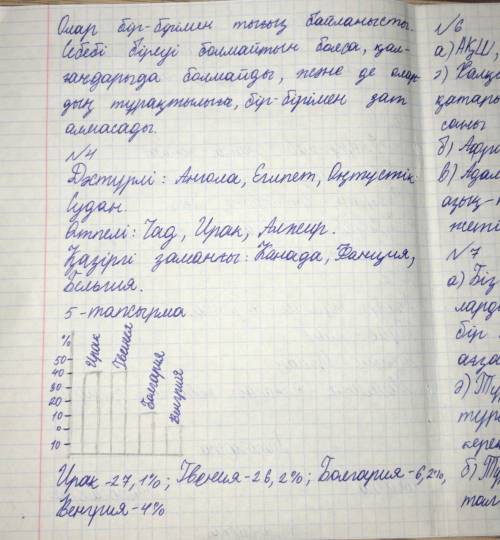 Олар бір-бірімен тығыз байланысты.
Себебі біреуі болмайтын болса, қал-
ғандарыда болмайды, және де олар
дың тұрақтылығы, бір-бірімен зат
алмасады.
№4
Дәстүрлі: Ангола, Египет, Оңтүстік
Судан.
Өтпелі: Чад, Ирак, Алжир.
Қазіргі заманғы: Канада, Франция,
Бельгия.
5-тапсырма
%
50
40
30
20
10
0
10
Ирак
Гвенея
Болгария
Венгрия
Ирак-27,1%; Гвенея-26,2%; Болгария-6,2%,
Венгрия-4%
№6
а) АҚШ,
қатары
саны
б)
в) Адам
азық-
жеті
№7
а) Біз
ларды
бір
ағза
ә) Тұр
тұра
керек
б) Тұр
тал